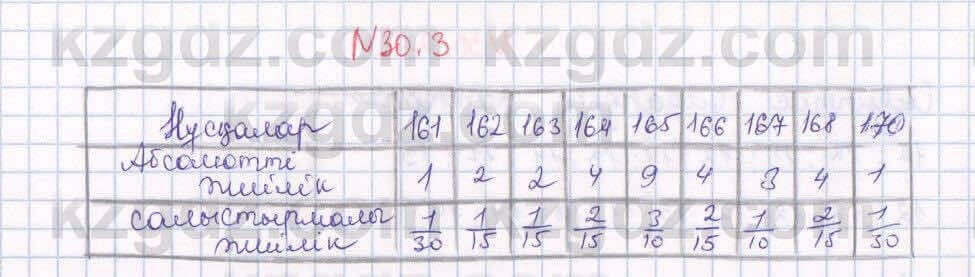 kzgdz.com kzgdz.com
N30.3
Нұсқалар 161 162 163 164 165 166 167 168 170
Абсолютті
жиілік 1 2 2 4 9 4 3 4 1
салыстырмалы
жиілік 1/30 1/15 1/15 2/15 3/10 2/15 1/10 2/15 1/30